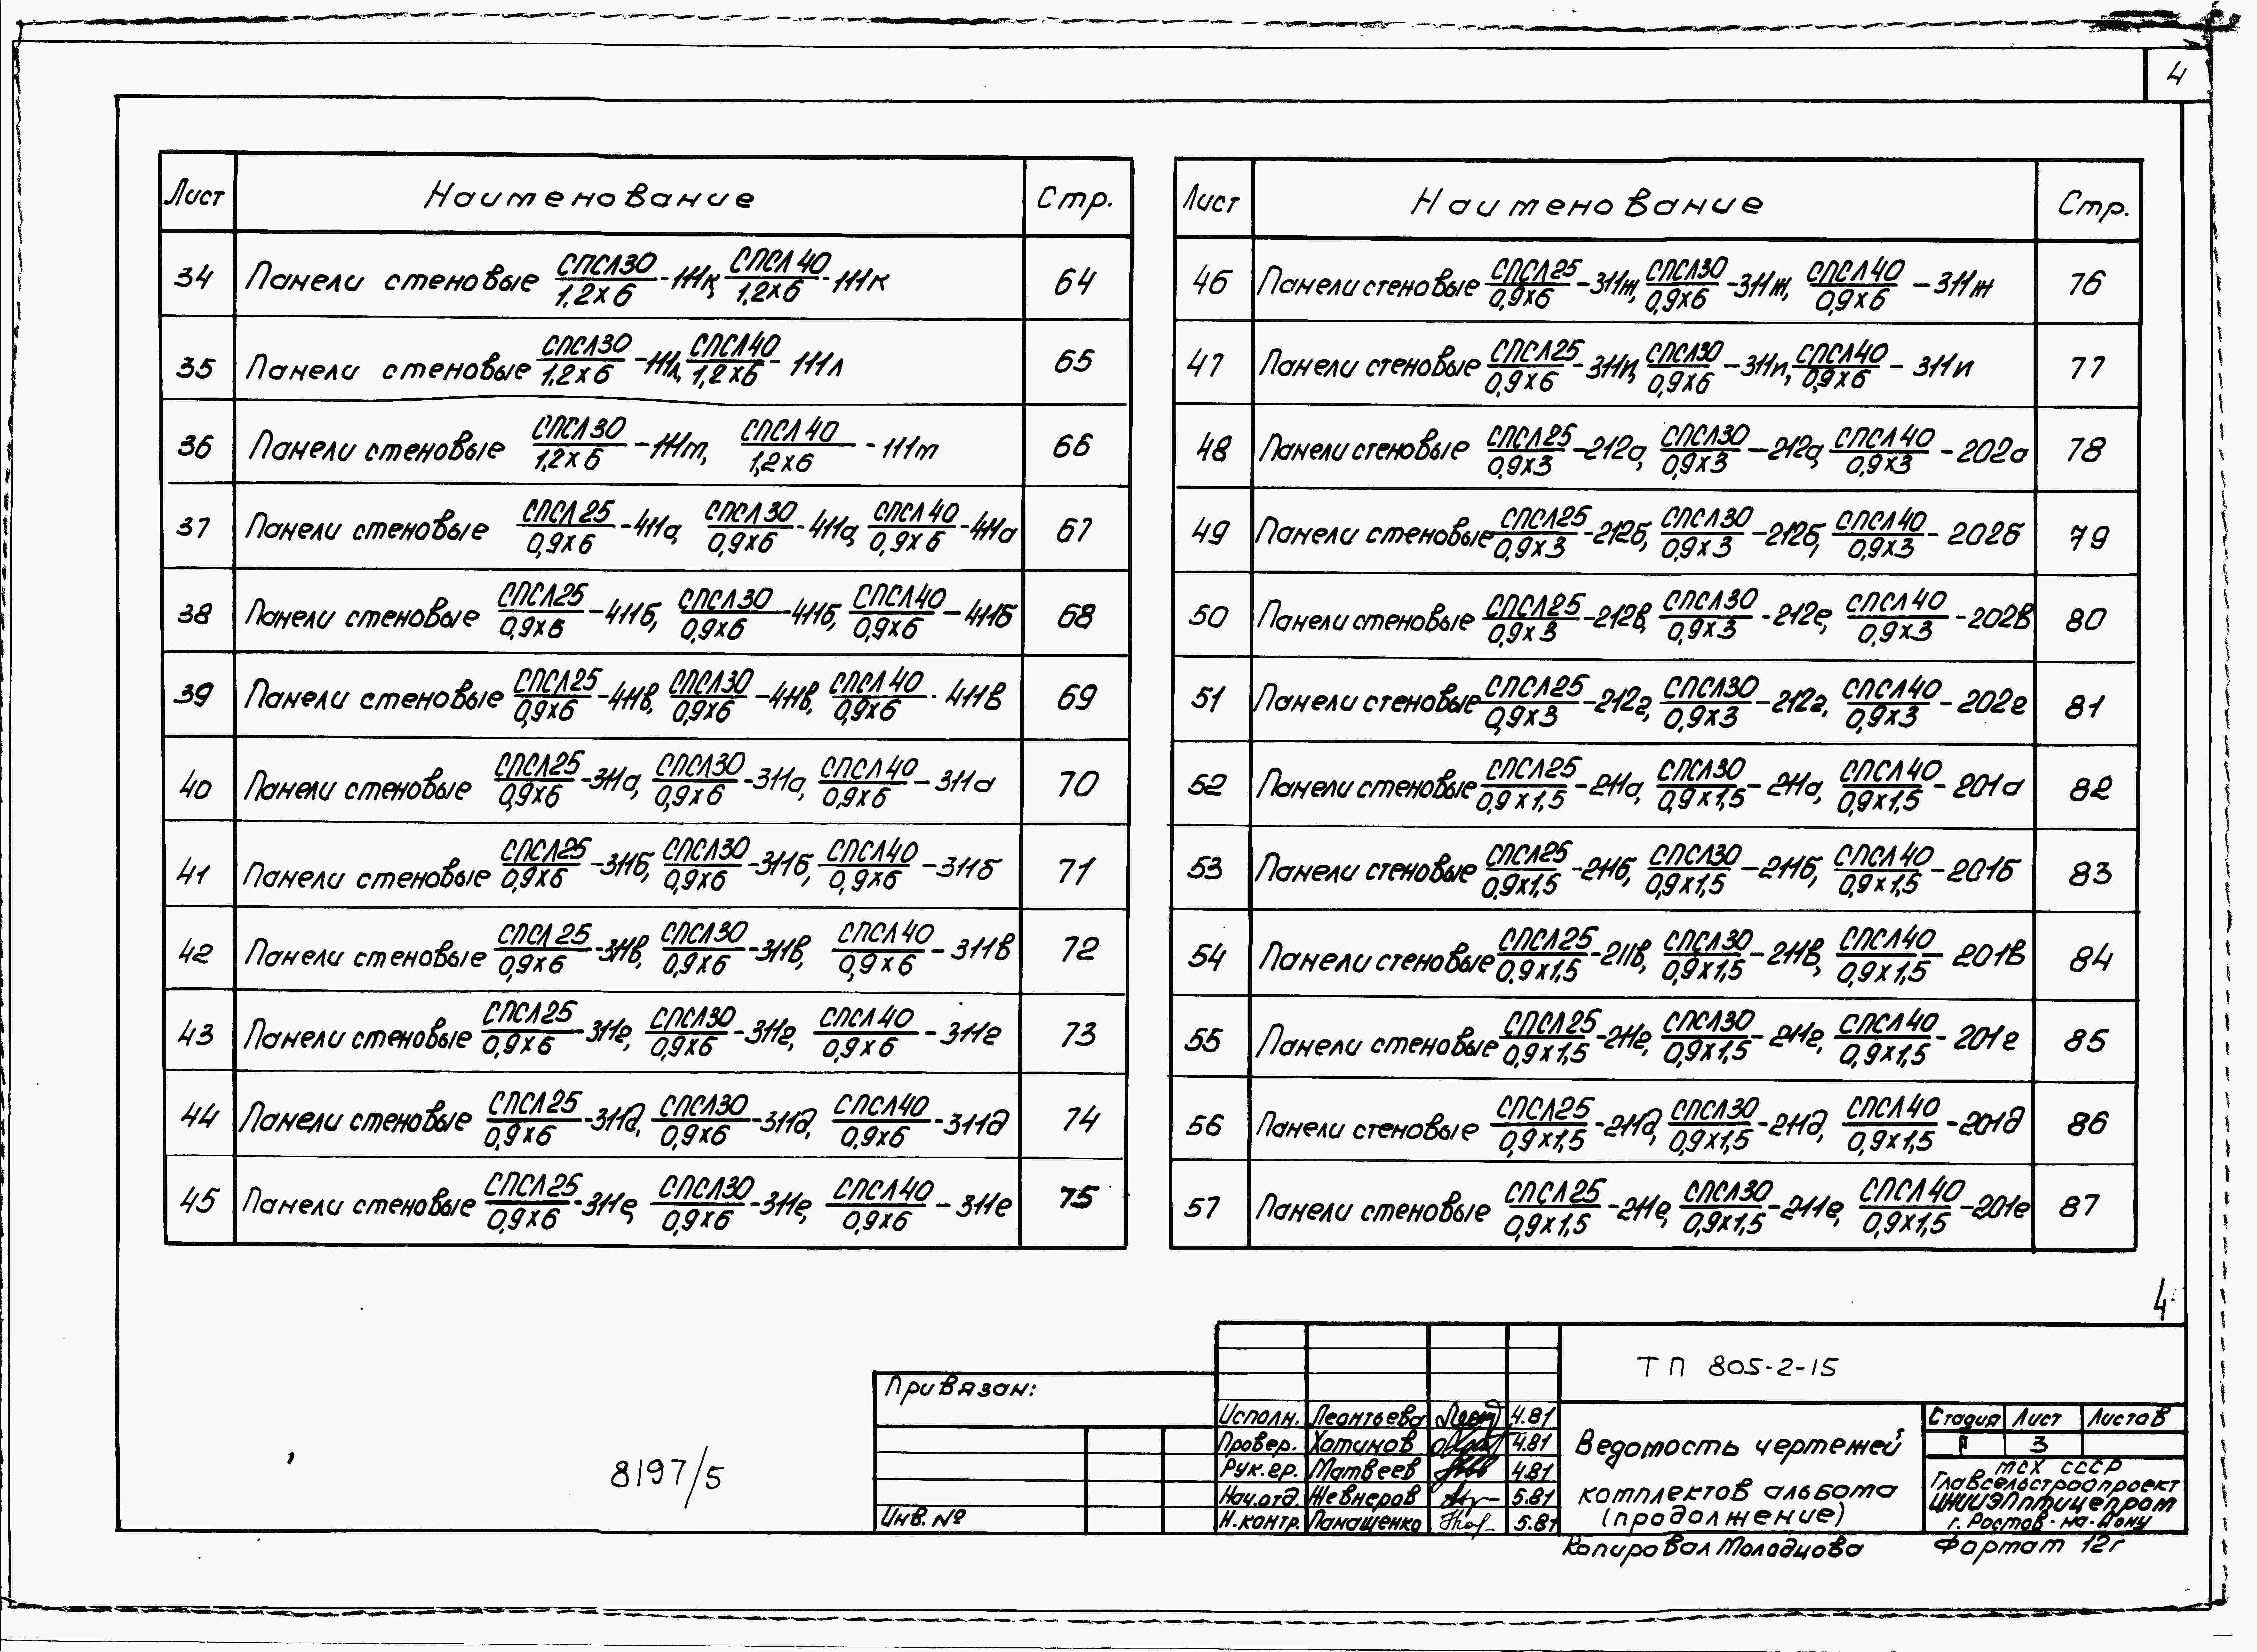 4
Лист Наименование Стр.
34 Панели стеновые СПСЛ30/1.2×6-111к, СПСЛ40/1.2×6-111к 64
35 Панели стеновые СПСЛ30/1.2×6-111л, СПСЛ40/1.2×6-111л 65
36 Панели стеновые СПСЛ30/1.2×6-111т, СПСЛ40/1.2×6-111т 66
37 Панели стеновые СПСЛ25/0,9×6-411а, СПСЛ30/0,9×6-411а, СПСЛ40/0,9×6-411а 67
38 Панели стеновые СПСЛ25/0,9×6-411б, СПСЛ30/0,9×6-411б, СПСЛ40/0,9×6-411б 68
39 Панели стеновые СПСЛ25/0,9×6-411в, СПСЛ30/0,9×6-411в, СПСЛ40/0,9×6-411в 69
40 Панели стеновые СПСЛ25/0,9×6-311а, СПСЛ30/0,9×6-311а, СПСЛ40/0,9×6-311а 70
41 Панели стеновые СПСЛ25/0,9×6-311б, СПСЛ30/0,9×6-311б, СПСЛ40/0,9×6-311б 71
42 Панели стеновые СПСЛ25/0,9×6-311в, СПСЛ30/0,9×6-311в, СПСЛ40/0,9×6-311в 72
43 Панели стеновые СПСЛ25/0,9×6-311г, СПСЛ30/0,9×6-311г, СПСЛ40/0,9×6-311г 73
44 Панели стеновые СПСЛ25/0,9×6-311д, СПСЛ30/0,9×6-311д, СПСЛ40/0,9×6-311д 74
45 Панели стеновые СПСЛ25/0,9×6-311е, СПСЛ30/0,9×6-311е, СПСЛ40/0,9×6-311е 75
Лист Наименование Стр.
46 Панели стеновые СПСЛ25/0,9×6-311ж, СПСЛ30/0,9×6-311ж, СПСЛ40/0,9×6-311ж 76
47 Панели стеновые СПСЛ25/0,9×6-311п, СПСЛ30/0,9×6-311п, СПСЛ40/0,9×6-311п 77
48 Панели стеновые СПСЛ25/0,9×3-212а, СПСЛ30/0,9×3-212а, СПСЛ40/0,9×3-202а 78
49 Панели стеновые СПСЛ25/0,9×3-212б, СПСЛ30/0,9×3-212б, СПСЛ40/0,9×3-202б 79
50 Панели стеновые СПСЛ25/0,9×3-212в, СПСЛ30/0,9×3-212е, СПСЛ40/0,9×3-202в 80
51 Панели стеновые СПСЛ25/0,9×3-212г, СПСЛ30/0,9×3-212г, СПСЛ40/0,9×3-202г 81
52 Панели стеновые СПСЛ25/0,9×1,5-211а, СПСЛ30/0,9×1,5-211а, СПСЛ40/0,9×1,5-201а 82
53 Панели стеновые СПСЛ25/0,9×1,5-211б, СПСЛ30/0,9×1,5-211б, СПСЛ40/0,9×1,5-201б 83
54 Панели стеновые СПСЛ25/0,9×1,5-211в, СПСЛ30/0,9×1,5-211в, СПСЛ40/0,9×1,5-201в 84
55 Панели стеновые СПСЛ25/0,9×1,5-211г, СПСЛ30/0,9×1,5-211г, СПСЛ40/0,9×1,5-201г 85
56 Панели стеновые СПСЛ25/0,9×1,5-211д, СПСЛ30/0,9×1,5-211д, СПСЛ40/0,9×1,5-201д 86
57 Панели стеновые СПСЛ25/0,9×1,5-211е, СПСЛ30/0,9×1,5-211е, СПСЛ40/0,9×1,5-201е 87
4
8197/5
Привязан:
Инв. №
Исполн. Леонтьева 4.81
Провер. Хатунов 4.81
Рук.гр. Матвеев 4.81
Нач.отд. Жевнеров 5.81
Н.контр. Панащенко 5.81
ТП 805-2-15
Ведомость чертежей
комплектов альбома
(продолжение)
Стадия Лист Листов
Р 3
МСХ СССР
Главсельстройпроект
ЦНИИЭПптицепром
г. Ростов-на-Дону
Копировал Молодцова Формат 12г